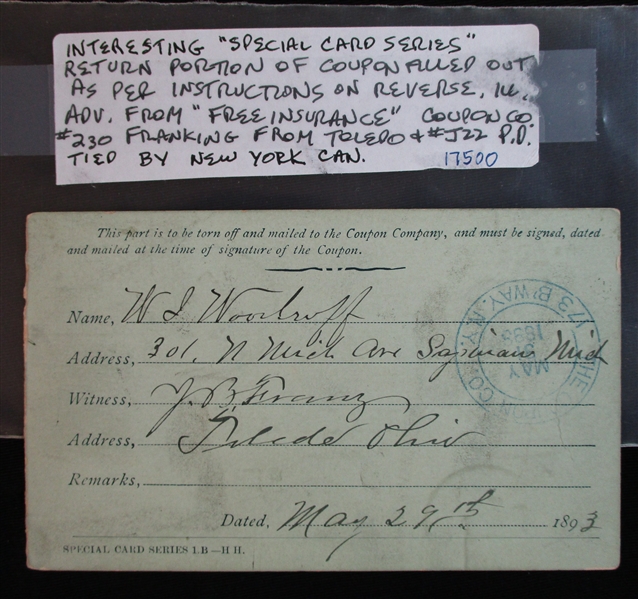 INTERESTING "SPECIAL CARD SERIES"
RETURN PORTION OF COUPON FILLED OUT
AS PER INSTRUCTIONS ON REVERSE, ILL.
ADV. FROM "FREE INSURANCE" COUPON CO
#230 FRANKING FROM TOLEDO & #J22 P.D.
TIED BY NEW YORK CAN. 17500
This part is to be torn off and mailed to the Coupon Company, and must be signed, dated
and mailed at the time of signature of the Coupon.
Name, W I Woodruff
Address, 301, N Mich Ave Saginaw Mich
Witness, J. B. Franz
Address, Toledo Ohio
Remarks,
Dated, May 29th 1893
SPECIAL CARD SERIES 1.B—H H.
THE
CO.
173 B'WAY, N.Y.
MAY